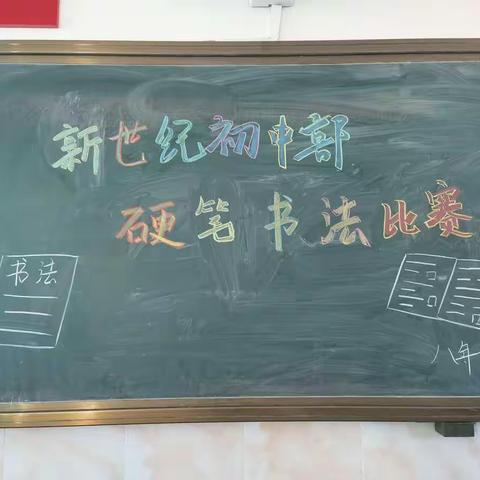 新世纪初中部
硬笔书法比赛
书法
八年